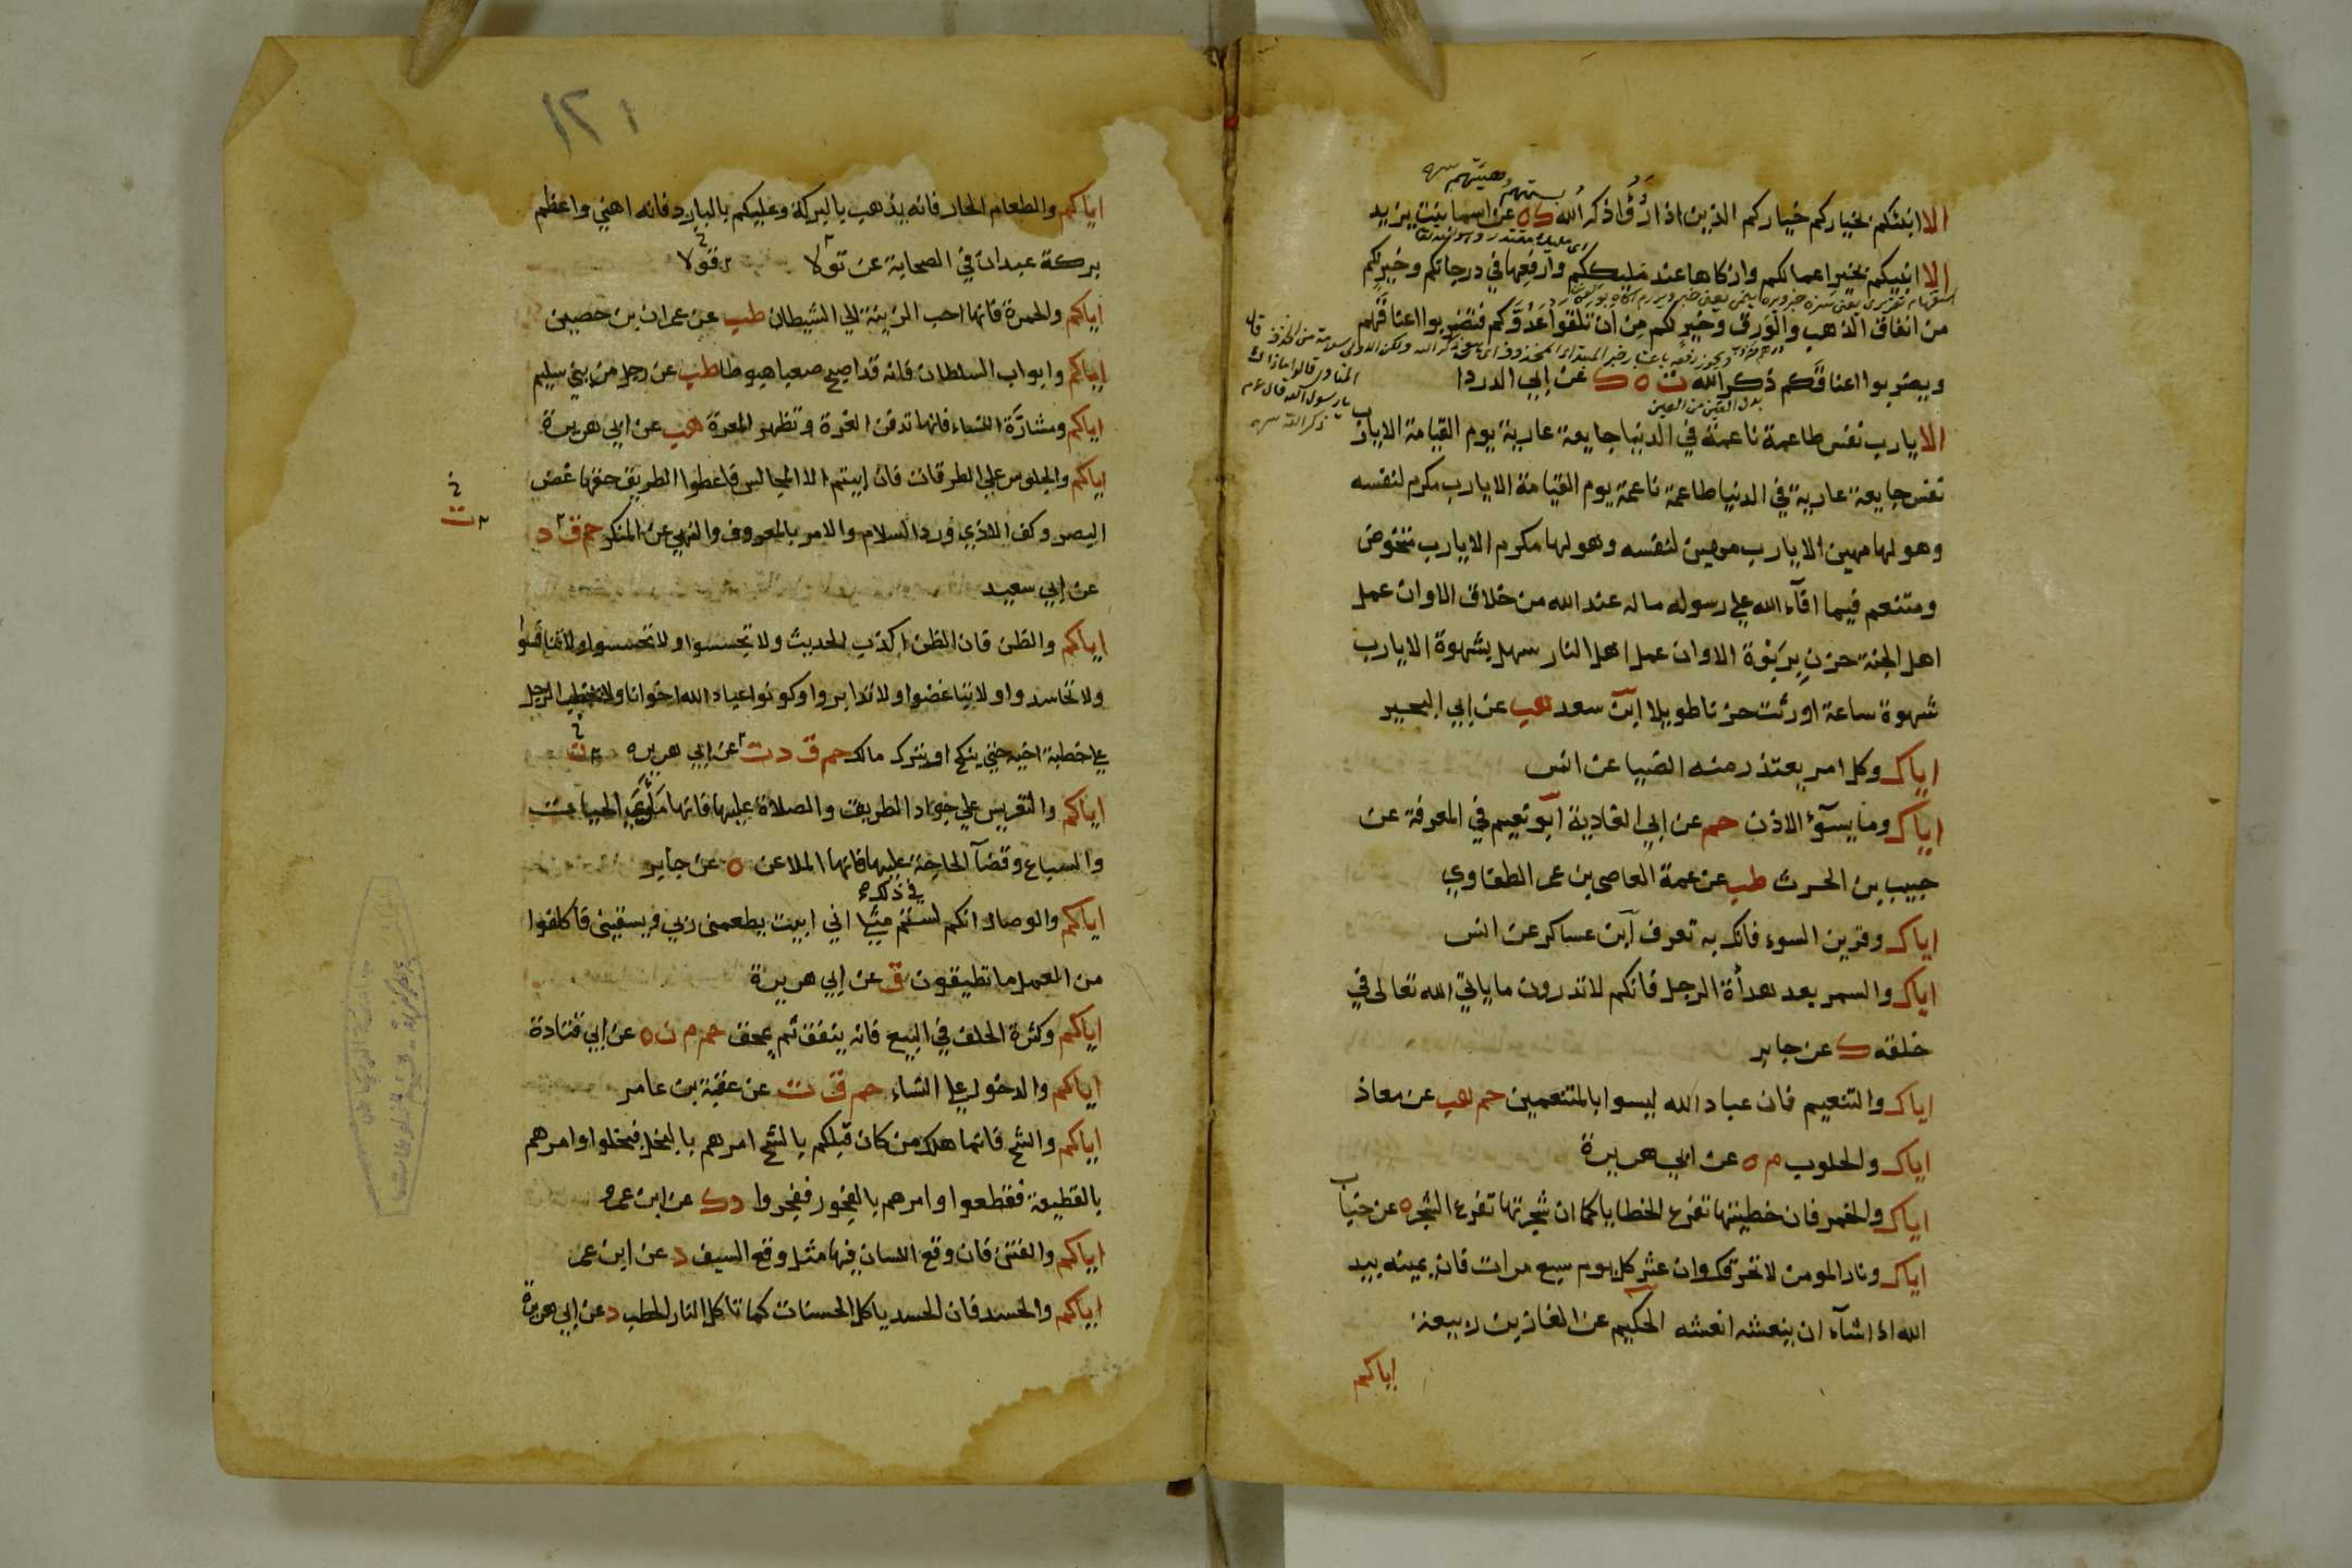 الا انبئكم بخياركم خياركم الذين اذا رؤا ذكر الله ك ه عن اسما بنت يزيد
الا انبيكم بخير اعمالكم وازكاها عند مليككم وارفعها في درجاتكم وخير لكم
من انفاق الذهب والورق وخير لكم من ان تلقوا عدوكم فتضربوا اعناقهم
ويضربوا اعناقكم ذكر الله ت ه ك عن ابي الدردا
الا يارب نفس طاعمة ناعمة في الدنيا جايعة عارية يوم القيامة الا يارب
نفس جايعة عارية في الدنيا طاعمة ناعمة يوم القيامة الا يارب مكرم لنفسه
وهو لها مهين الا يارب مهين لنفسه وهو لها مكرم الا يارب متخوض
ومتنعم فيما افآء الله علي رسوله ماله عند الله من خلاق الا وان عمل
اهل الجنة حزن بربوة الا وان عمل اهل النار سهل بشهوة الا يارب
شهوة ساعة اورثت حزنا طويلا ابن سعد هب عن ابي البجير
اياك وكل امر يعتذر منه الضيا عن انس
اياك وما يسوء الاذن حم عن ابي الغادية ابو نعيم في المعرفة عن
حبيب بن الحرث طب عن عمة العاصي بن عمر الطفاوي
اياك وقرين السوء فانك به تعرف ابن عساكر عن انس
اياك والسمر بعد هدأة الرجل فانكم لا تدرون ما ياتي الله تعالى في
خلقه ك عن جابر
اياك والتنعيم فان عباد الله ليسوا بالمتنعمين حم هب عن معاذ
اياك والحلوب م ه عن ابي هريرة
اياك والخمر فان خطيئتها تفرع الخطايا كما ان شجرتها تفرع الشجر ه عن خباب
اياك ونار المومن لا تحرقك وان عثر كل يوم سبع مرات فان يمينه بيد
الله اذا شآء ان ينعشه انعشه الحكيم عن الغاز بن ربيعة
اياكم
١٢١
اياكم والطعام الحار فانه يذهب بالبركة وعليكم بالبارد فانه اهني واعظم
بركة عبدان في الصحابة عن تولا
اياكم والحمرة فانها احب الزينة الي الشيطان طب عن عمران بن حصين
اياكم وابواب السلطان فانه قد اصبح صعبا هبوطا طب عن رجل من بني سليم
اياكم ومشارة الناس فانها تدفن الغرة وتظهر المعرة هب عن ابي هريرة
اياكم والجلوس علي الطرقات فان ابيتم الا المجالس فاعطوا الطريق حقها غض
البصر وكف الاذي ورد السلام والامر بالمعروف والنهي عن المنكر حم ق د
عن ابي سعيد
اياكم والظن فان الظن اكذب الحديث ولا تجسسوا ولا تحسسوا ولا تنافسوا
ولا تحاسدوا ولا تباغضوا ولا تدابروا وكونوا عباد الله اخوانا ولا يخطب الرجل
علي خطبة اخيه حتي ينكح او يترك مالك حم ق د ت عن ابي هريره
اياكم والتعريس علي جواد الطريق والصلاة عليها فانها ماوي الحيات
والسباع وقضآ الحاجة عليها فانها الملاعن ه عن جابر
اياكم والوصال انكم لستم في ذلك مثلي اني ابيت يطعمني ربي ويسقيني فاكلفوا
من العمل ما تطيقون ق عن ابي هريرة
اياكم وكثرة الحلف في البيع فانه ينفق ثم يمحق حم م ن ه عن ابي قتادة
اياكم والدخول علي النساء حم ق ت عن عقبة بن عامر
اياكم والشح فانما هلك من كان قبلكم بالشح امرهم بالبخل فبخلوا وامرهم
بالقطيعة فقطعوا وامرهم بالفجور ففجروا د ك عن ابن عمرو
اياكم والفتن فان وقع اللسان فيها مثل وقع السيف ه عن ابن عمر
اياكم والحسد فان الحسد ياكل الحسنات كما تاكل النار الحطب د عن ابي هريرة